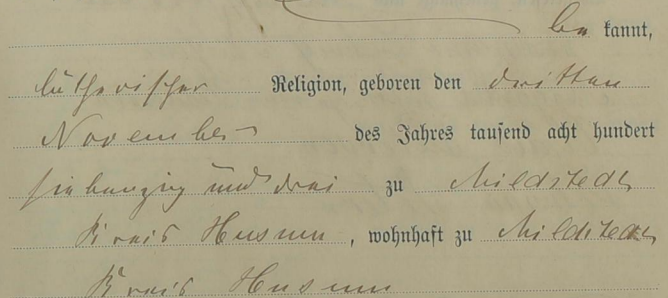 be kannt,
lutherischer Religion, geboren den dritten
November des Jahres tausend acht hundert
siebenzig und drei zu Mildstedt
Kreis Husum, wohnhaft zu Mildstedt
Kreis Husum